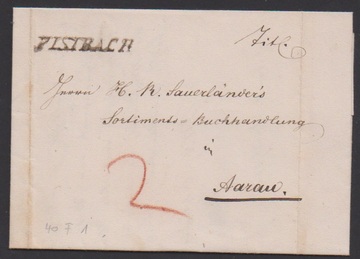 FISIBACH
Titl.
Herrn H. R. Sauerländer's
Sortiments-Buchhandlung
in
Aarau.
2
40 F 1